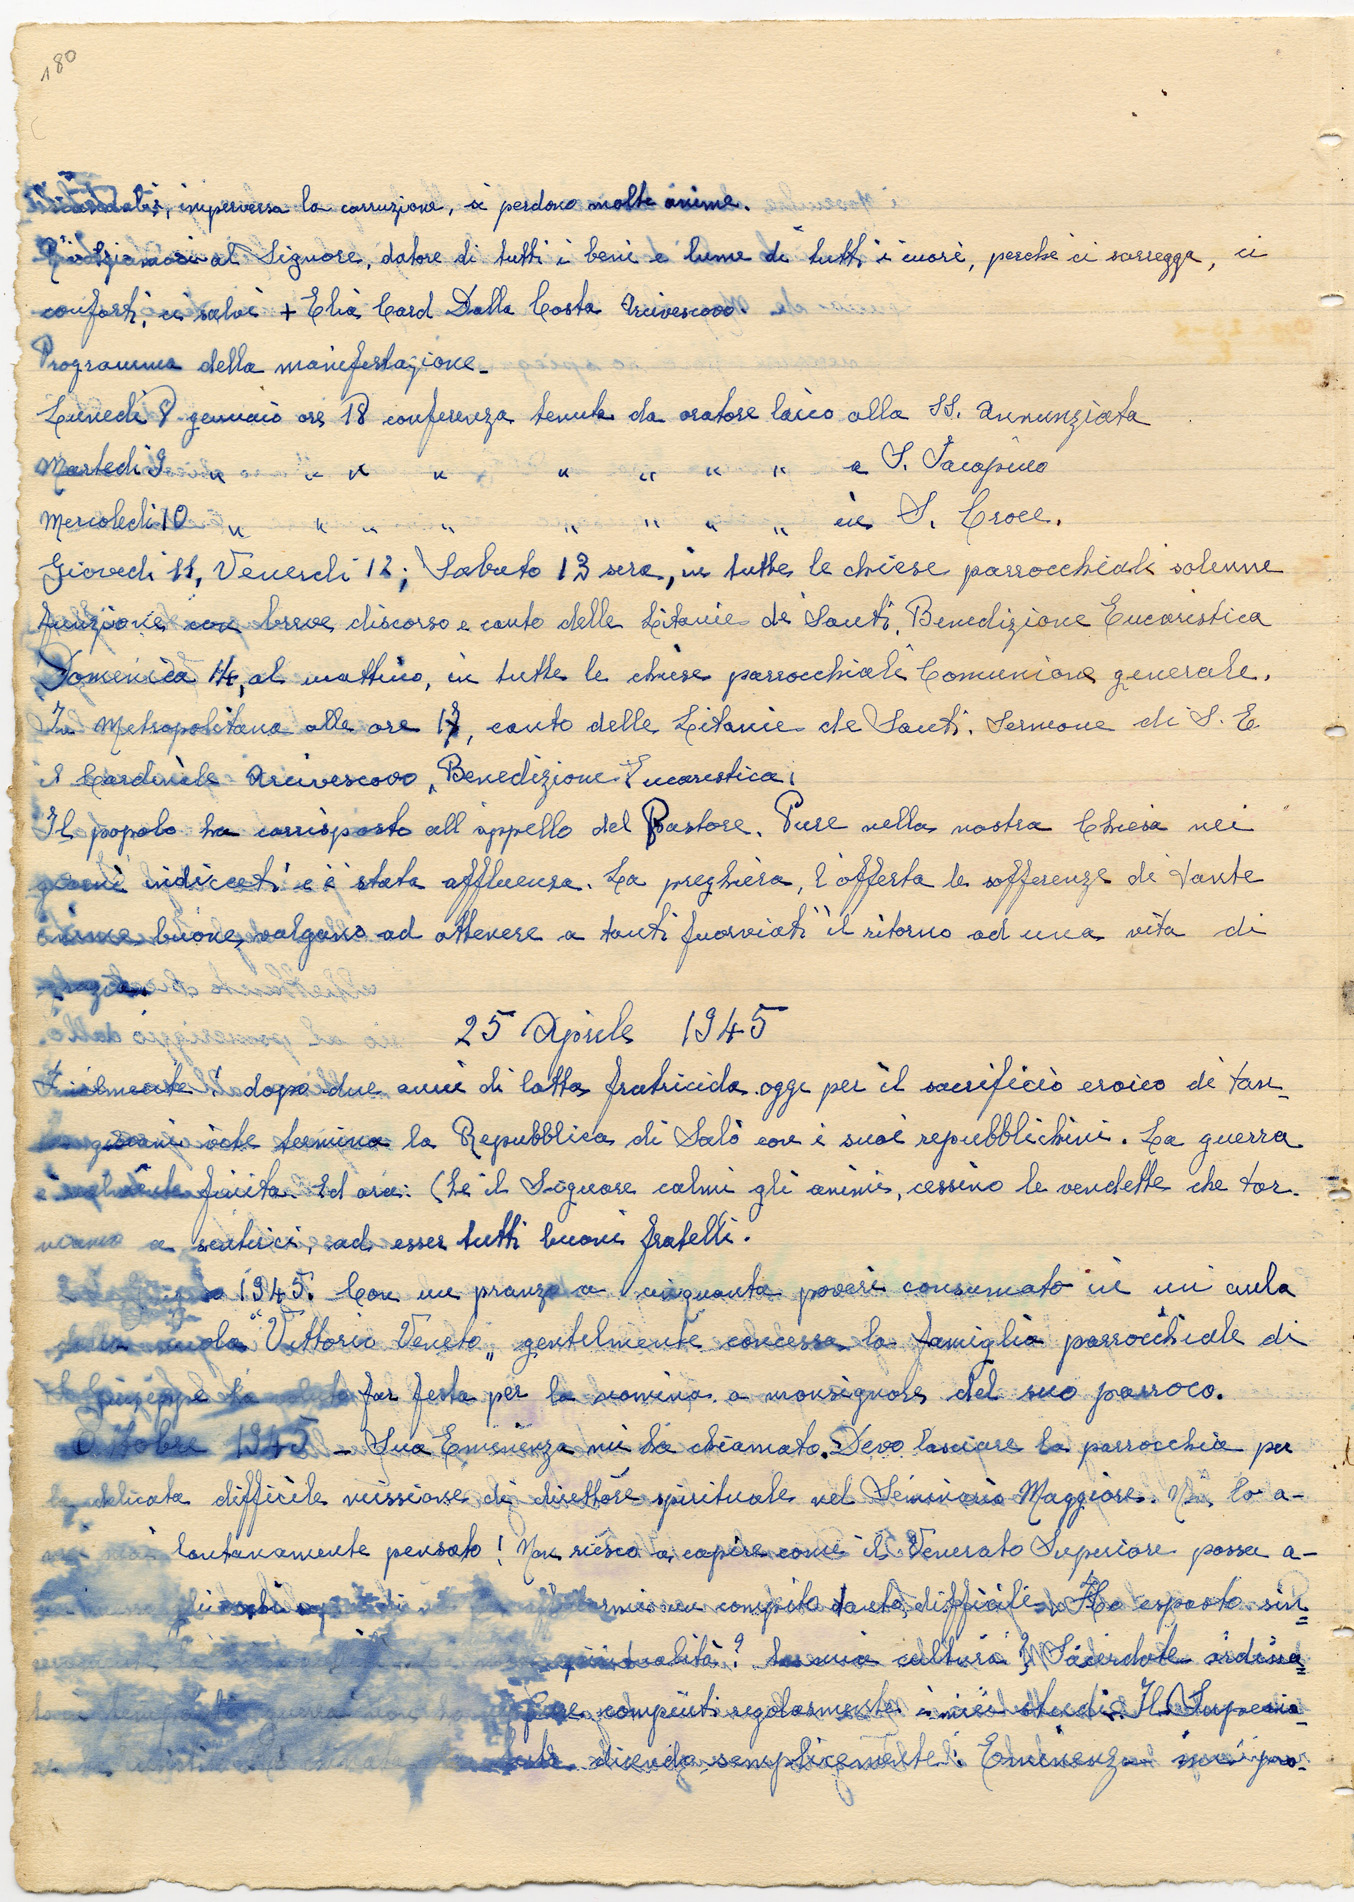 180
imperversa la corruzione, si perdono molte anime.
al Signore, datore di tutti i beni e lume di tutti i cuori, perchè ci sorregga, ci
conforti, ci salvi + Elia Card Dalla Costa Arcivescovo
Programma della manifestazione_
Lunedì 8 gennaio ore 18 conferenza tenuta da oratore laico alla SS. Annunziata
Martedì 9 " " " " " " " " a S. Jacopino
Mercoledì 10 " " " " " " " " in S. Croce.
Giovedì 11, Venerdì 12; Sabato 13 sera, in tutte le chiese parrocchiali solenne
funzione con breve discorso e canto delle Litanie de Santi, Benedizione Eucaristica
Domenica 14, al mattino, in tutte le chiese parrocchiali Comunione generale.
In Metropolitana alle ore canto delle Litanie de Santi. Sermone di S. E.
il Cardinale Arcivescovo, Benedizione Eucaristica.
Il popolo ha corrisposto all'appello del Pastore. Pure nella nostra Chiesa nei
giorni indicati c'è stata affluenza. La preghiera, l'offerta le sofferenze di tante
anime buone, valgano ad ottenere a tanti fuorviati il ritorno ad una vita di
grazia.
25 Aprile 1945
Finalmente! dopo due anni di lotta fratricida oggi per il sacrificio eroico di tan-
giovani vite termina la Repubblica di Salò con i suoi repubblichini. La guerra
è finita. Ed ora: Che il Signore calmi gli animi, cessino le vendette che tor-
niamo a sentirci, ad esser tutti buoni fratelli.
1945. Con un pranzo a cinquanta poveri consumato in un aula
della scuola "Vittorio Veneto" gentilmente concessa la famiglia parrocchiale di
S. Giuseppe ha voluto far festa per la nomina a monsignore del suo parroco.
Ottobre 1945 _ Sua Eminenza mi ha chiamato. Devo lasciare la parrocchia per
la delicata difficile missione di direttore spirituale nel Seminario Maggiore. lo a-
mai lontanamente pensato! Non riesco a capire come il Venerato Superiore possa a-
un compito tanto difficile. Ho esposto sin=
spiritualità? la mia cultura? Sacerdote ordina=
compiuti regolarmente i miei studi. Il Superio-
dicendo semplicemente: Eminenza mi pro-